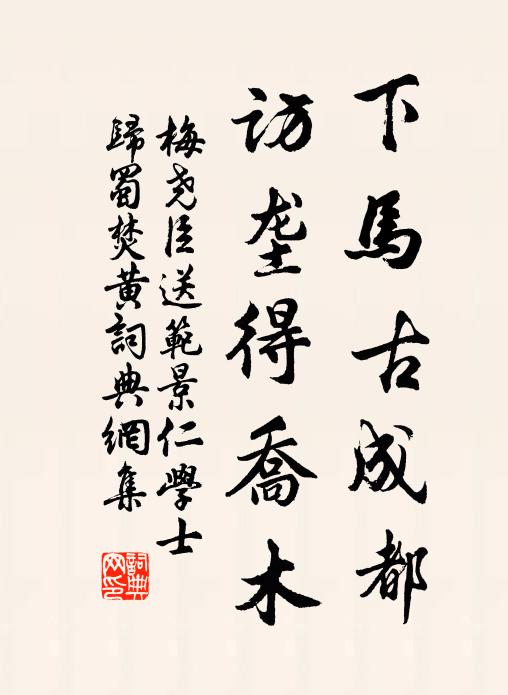 下馬古成都
访垄得喬木
梅尧臣送範景仁學士
歸蜀焚黄詞典網集
詞典
网印